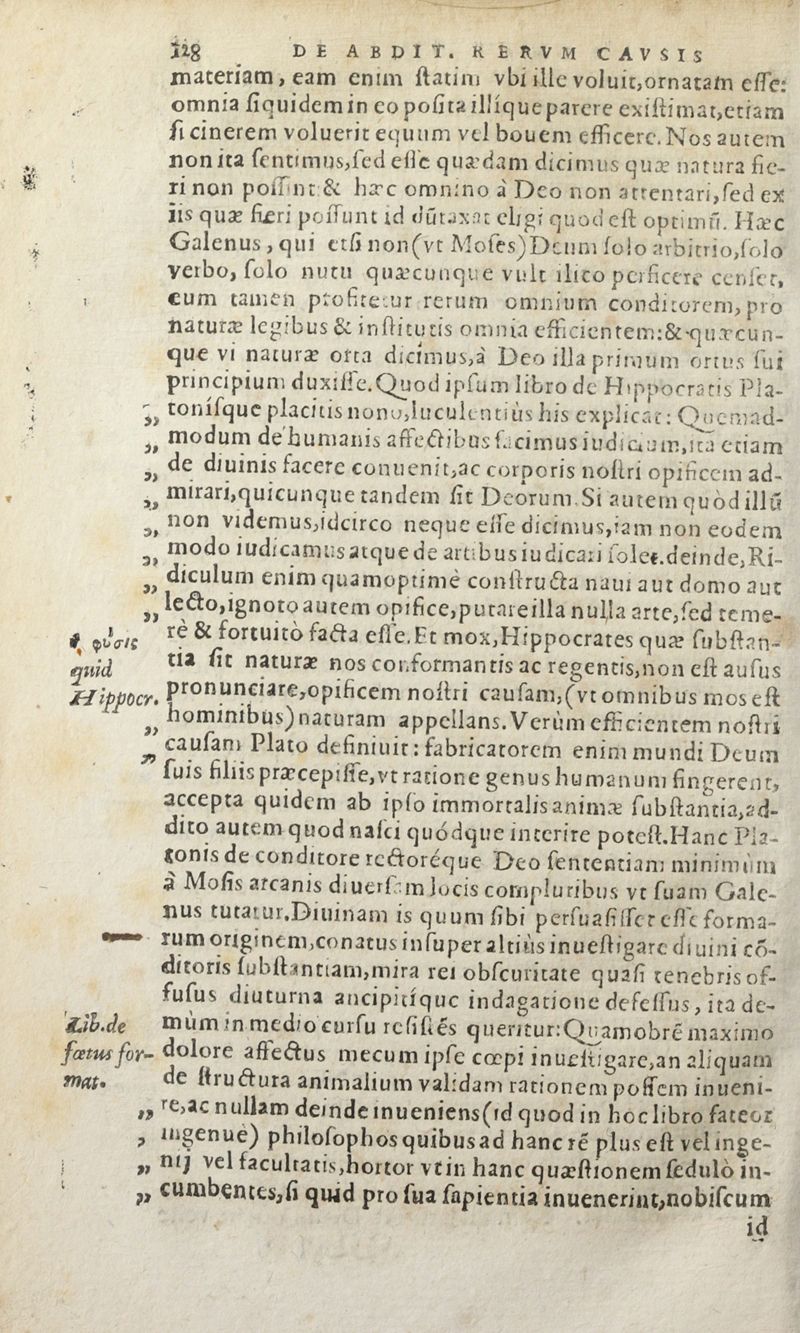 118 DE ABDIT. RERVM CAVSIS
materiam, eam enim ſtatim vbi ille voluit,ornatam eſſe:
omnia ſiquidem in eo poſita illíque parere exiſtimat,etiam
ſi cinerem voluerit equum vel bouem efficere. Nos autem
non ita ſentimus,ſed eſſe quædam dicimus quæ natura fie-
ri non poſſint:& hæc omnino à Deo non attentari,ſed ex
iis quæ fieri poſſunt id dũtaxat eligi quod eſt optimũ. Hæc
Galenus, qui etſi non(vt Moſes)Deum ſolo arbitrio,ſolo
verbo, ſolo nutu quæcunque vult ilico perficere cenſet,
cum tamen profitetur rerum omnium conditorem, pro
naturæ legibus & inſtitutis omnia efficientem:& quæcun-
que vi naturæ orta dicimus,à Deo illa primum ortus ſui
principium duxiſſe. Quod ipſum libro de Hippocratis Pla-
„ toniſque placitis nono,luculentiùs his explicat: Quemad-
„ modum de humanis affectibus facimus iudicium,ita etiam
„ de diuinis facere conuenit,ac corporis noſtri opificem ad-
„ mirari,quicunque tandem ſit Deorum. Si autem quòd illũ
„ non videmus,idcirco neque eſſe dicimus,iam non eodem
„ modo iudicamus atque de artibus iudicari ſolet.deinde,Ri-
„ diculum enim quamoptimè conſtructa naui aut domo aut
„ lecto,ignoto autem opifice,putare illa nulla arte,ſed teme-
φύσις re & fortuitò facta eſſe. Et mox,Hippocrates quæ ſubſtan-
quid tia ſit naturæ nos conformantis ac regentis,non eſt auſus
Hippocr. pronunciare,opificem noſtri cauſam,(vt omnibus mos eſt
„ hominibus)naturam appellans. Verùm efficientem noſtri
„ cauſam Plato definiuit: fabricatorem enim mundi Deum
ſuis filiis præcepiſſe,vt ratione genus humanum fingerent,
accepta quidem ab ipſo immortalis animæ ſubſtantia,ad-
dito autem quod naſci quódque interire poteſt. Hanc Pla-
tonis de conditore rectoréque Deo ſententiam minimùm
à Moſis arcanis diuerſam locis compluribus vt ſuam Gale-
nus tutatur. Diuinam is quum ſibi perſuaſiſſet eſſe forma-
rum originem,conatus inſuper altiùs inueſtigare diuini cõ-
ditoris ſubſtantiam,mira rei obſcuritate quaſi tenebris of-
fuſus diuturna ancipitíque indagatione defeſſus, ita de-
Lib.de mum in medio curſu reſiſtés queritur: Quamobrẽ maximo
fœtus for- dolore affectus mecum ipſe cœpi inueſtigare,an aliquam
mat. de ſtructura animalium validam rationem poſſem inueni-
„ re,ac nullam deinde inueniens(id quod in hoc libro fateor
„ ingenuè) philoſophos quibus ad hanc rẽ plus eſt vel inge-
„ nij vel facultatis,hortor vt in hanc quæſtionem ſedulò in-
„ cumbentes,ſi quid pro ſua ſapientia inuenerint,nobiſcum
id